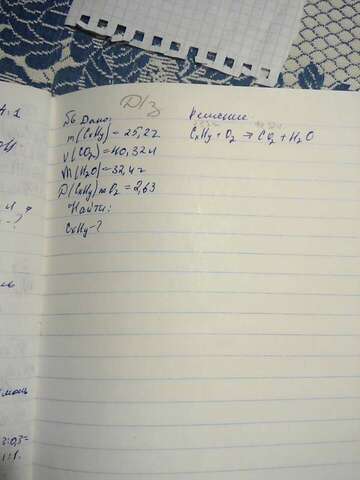 Д/з
№6 Дано:
m(CxHy)=25,2г
V(CO2)=40,32л
m(H2O)=32,4г
D(CxHy)по O2=2,63
Найти:
CxHy-?
Решение:
CxHy+O2→CO2+H2O
л
-?
3:0,3=
1:1.